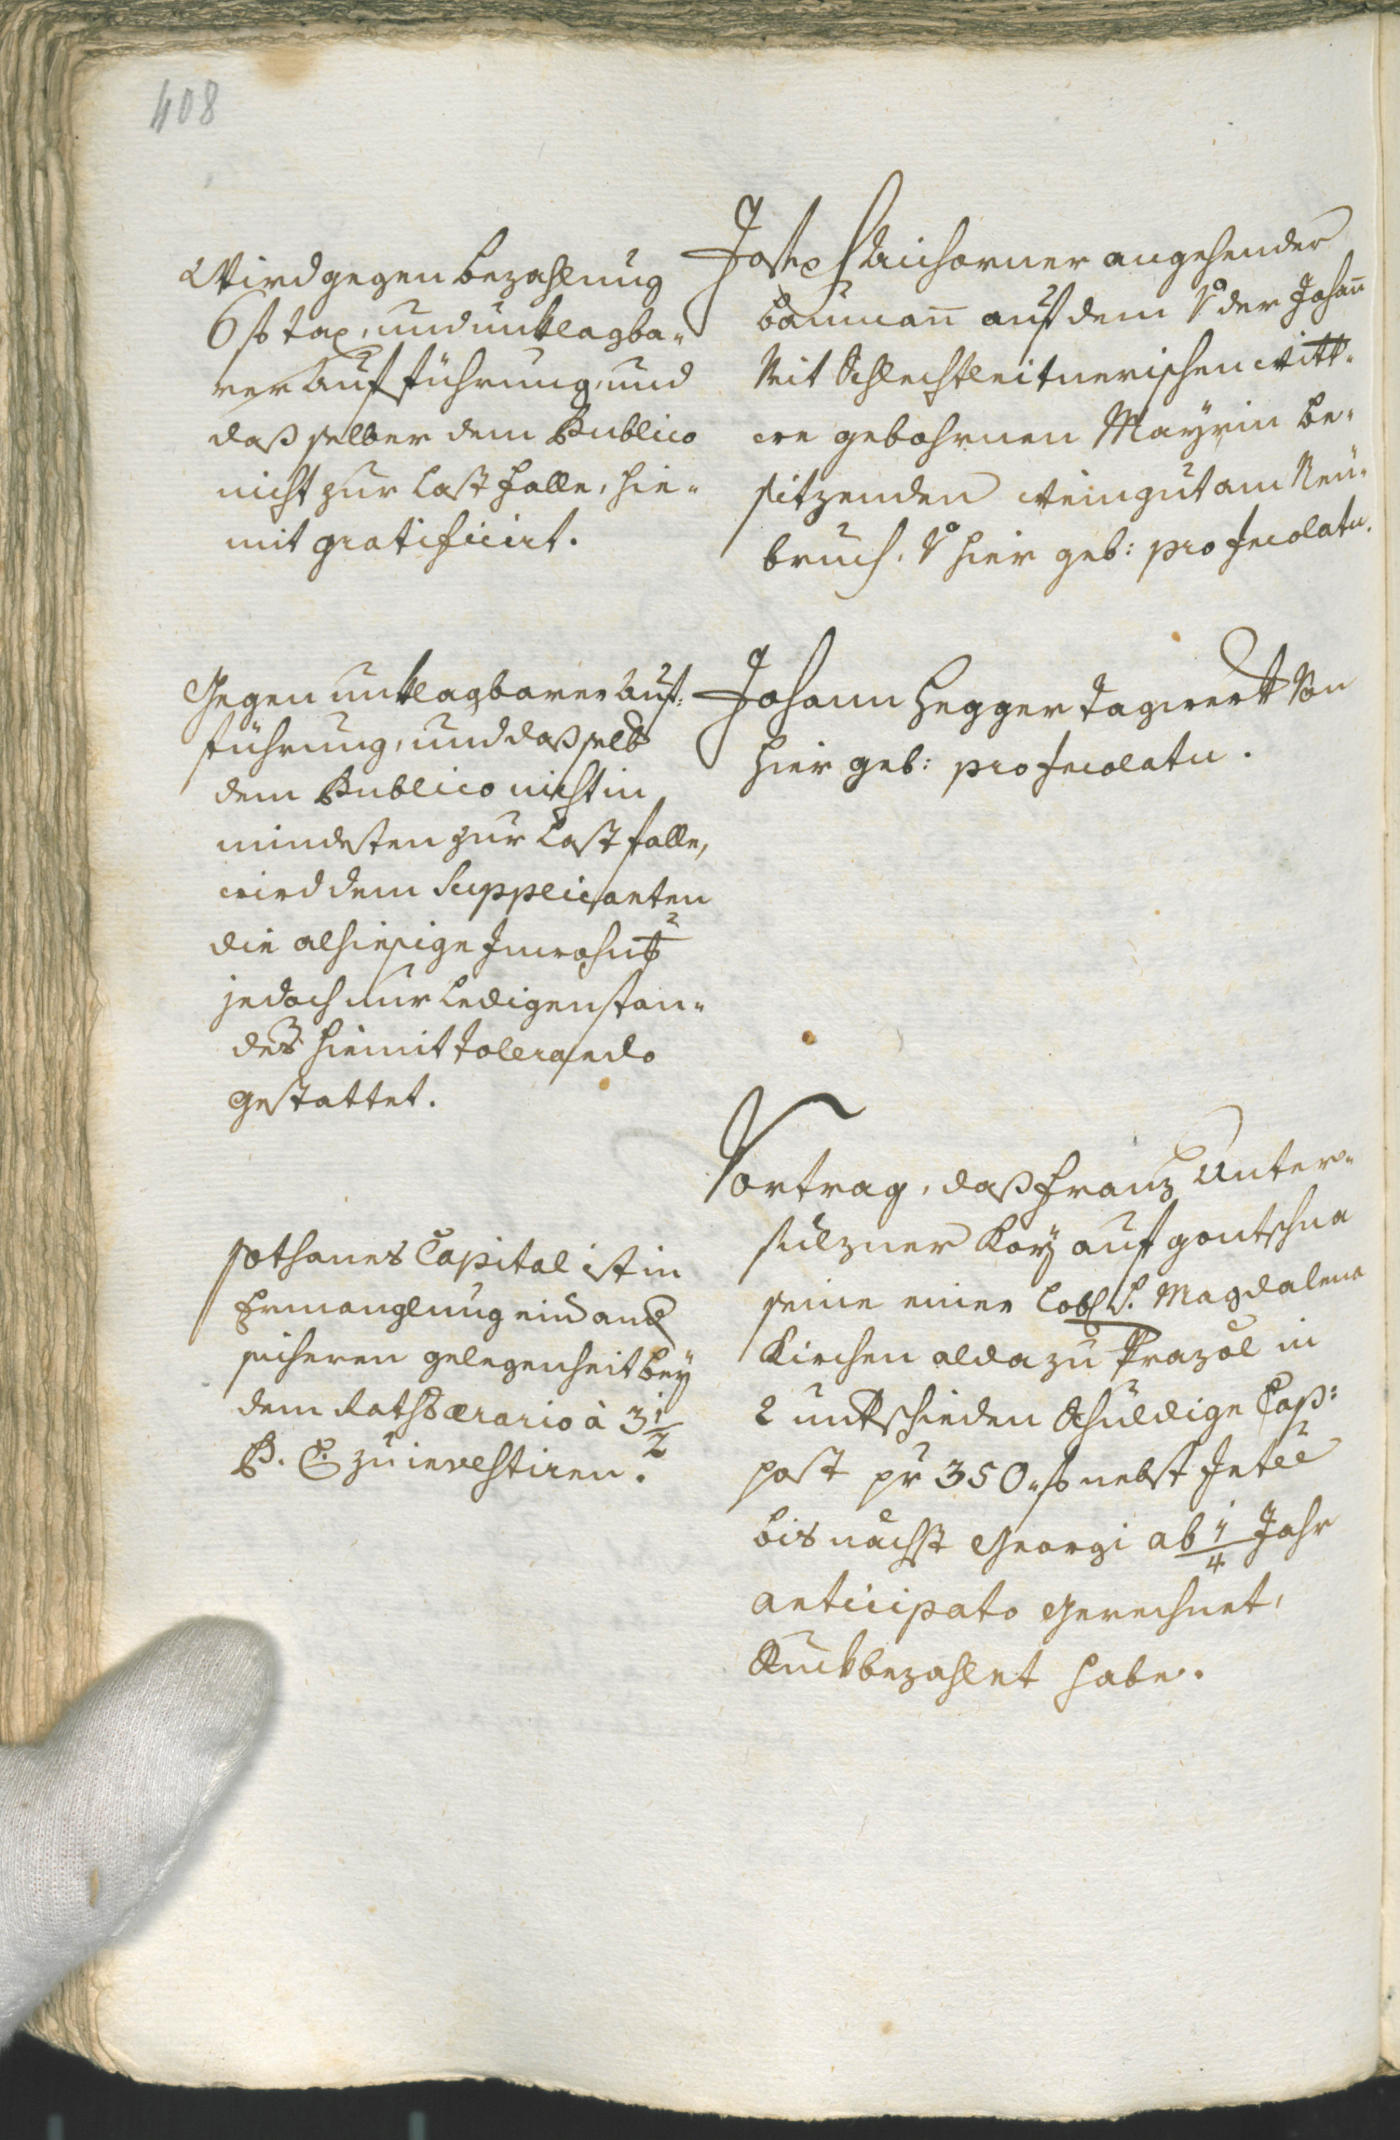 408
Wird gegen bezahlung
6 fl tax, und unklagba-
rer Aufführung, und
daß selber dem Publico
nicht zur Last falle, hie-
mit gratificirt.
Joseph Aichorner angehender
baumañ auf dem Vo der Johañ
Veit Schlechtleitnerischen witt-
we gebohrnen Mayrin be-
sitzenden weingut am Neu-
bruch. Vo hier geb: pro Incolatu.
Gegen unklagbarer Auf-
führung, und daß selb
dem Publico nicht in
mindesten zur Last falle,
wird dem Supplicanten
die alhiesige Inwohng
jedoch nur Ledigen stan-
des hiemit tolerando
gestattet.
Johann Hegger tagwerkh Von
hier geb: pro Incolatu.
Vortrag, daß Franz Unter-
sulzner Korz auf gontschna
seine einer Lobl S. Magdalena
Kirchen alda zu Prazöl in
2 untschieden Schuldige Cap:
post pr 350 fl nebst Intee
bis nächst Georgi ab 1/4 Jahr
anticipato gerechnet,
Ruckbezahlet habe.
sothanes Capital ist in
Ermanglung eind and
sicheren gelegenheit bey
dem Raths ærario à 3 1/2
P. C. zu investiren.